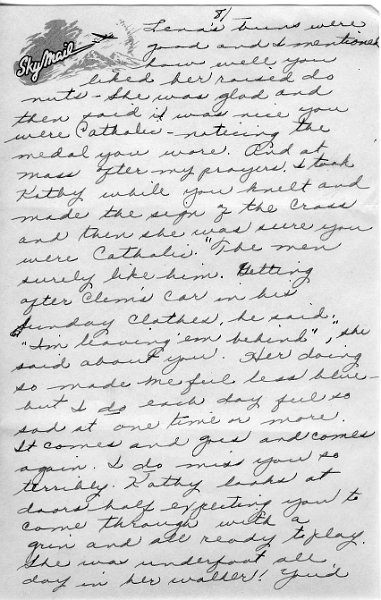 8/
Sky Mail
Lena's buns were
good and I mentioned
how well you
liked her raised do
nuts - She was glad and
then said it was nice you
were Catholic - noticing the
medal you wore. And at
mass after my prayers, I took
Kathy while you knelt and
made the sign of the Cross
and then she was sure you
were Catholic. "The men
surely like him. Getting
after Clem's car in his
Sunday clothes, he said:
"I'm leaving 'em behind", she
said about you. Her doing
so made me feel less blue -
but I do each day feel so
sad at one time or more.
It comes and goes and comes
again. I do miss you so
terribly. Kathy looks at
doors half expecting you to
come through with a
grin and all ready to play.
She was underfoot all
day in her walker! You'd